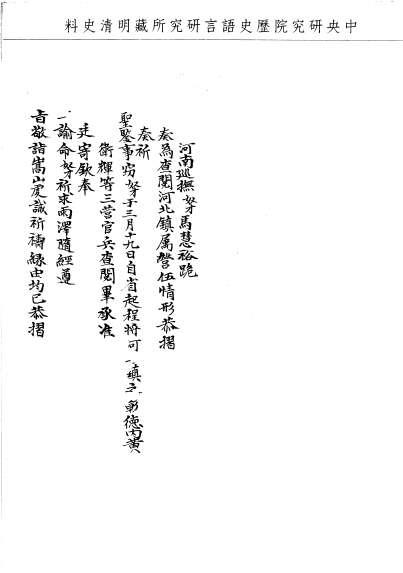 中央研究院歷史語言研究所藏明清史料
河南巡撫奴才馬慧裕跪
奏為查閱河北鎮屬營伍情形恭摺
奏祈
聖鑒事竊奴才于三月十九日自省起程將可
鎮 彰德內黃
衛輝等三營官兵查閱畢承准
廷寄欽奉
諭命奴才祈求雨澤隨經遵
旨敬詣嵩山虔誠祈禱緣由均已恭摺